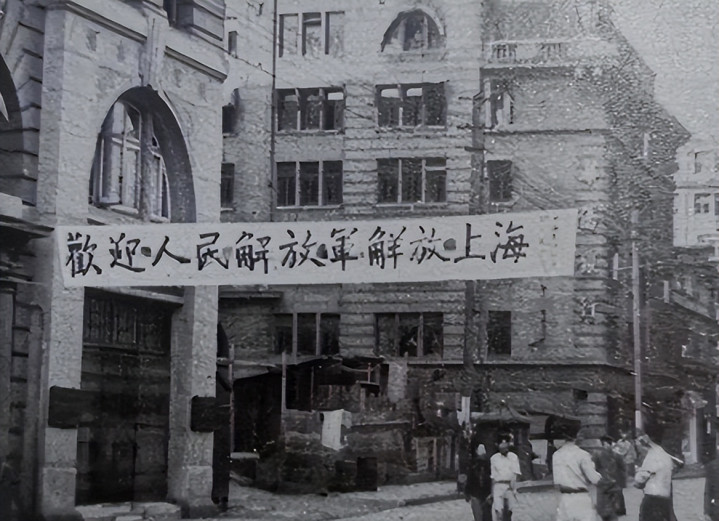 歡迎·人民解放軍解放·上海